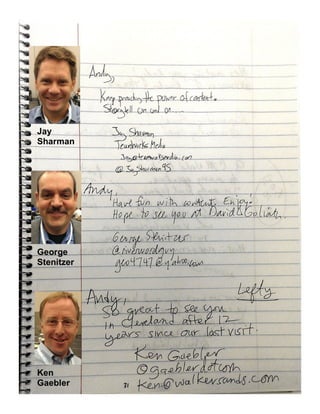 Andy,
Keep preaching the power of content.
Storytell on and on....
Jay Sharman
Teamworks Media
Jay
Sharman
Andy,
Have fun with content. Enjoy.
Hope to see you at David & Goliath.
George Stenitzer
@riverwordguy
geo4747@yahoo.com
George
Stenitzer
Lefty
Andy,
So great to see you
in Cleveland after 12
years since our last visit.
Ken Gaebler
@gaeblerdotcom
ken@walkersands.com
Ken
Gaebler